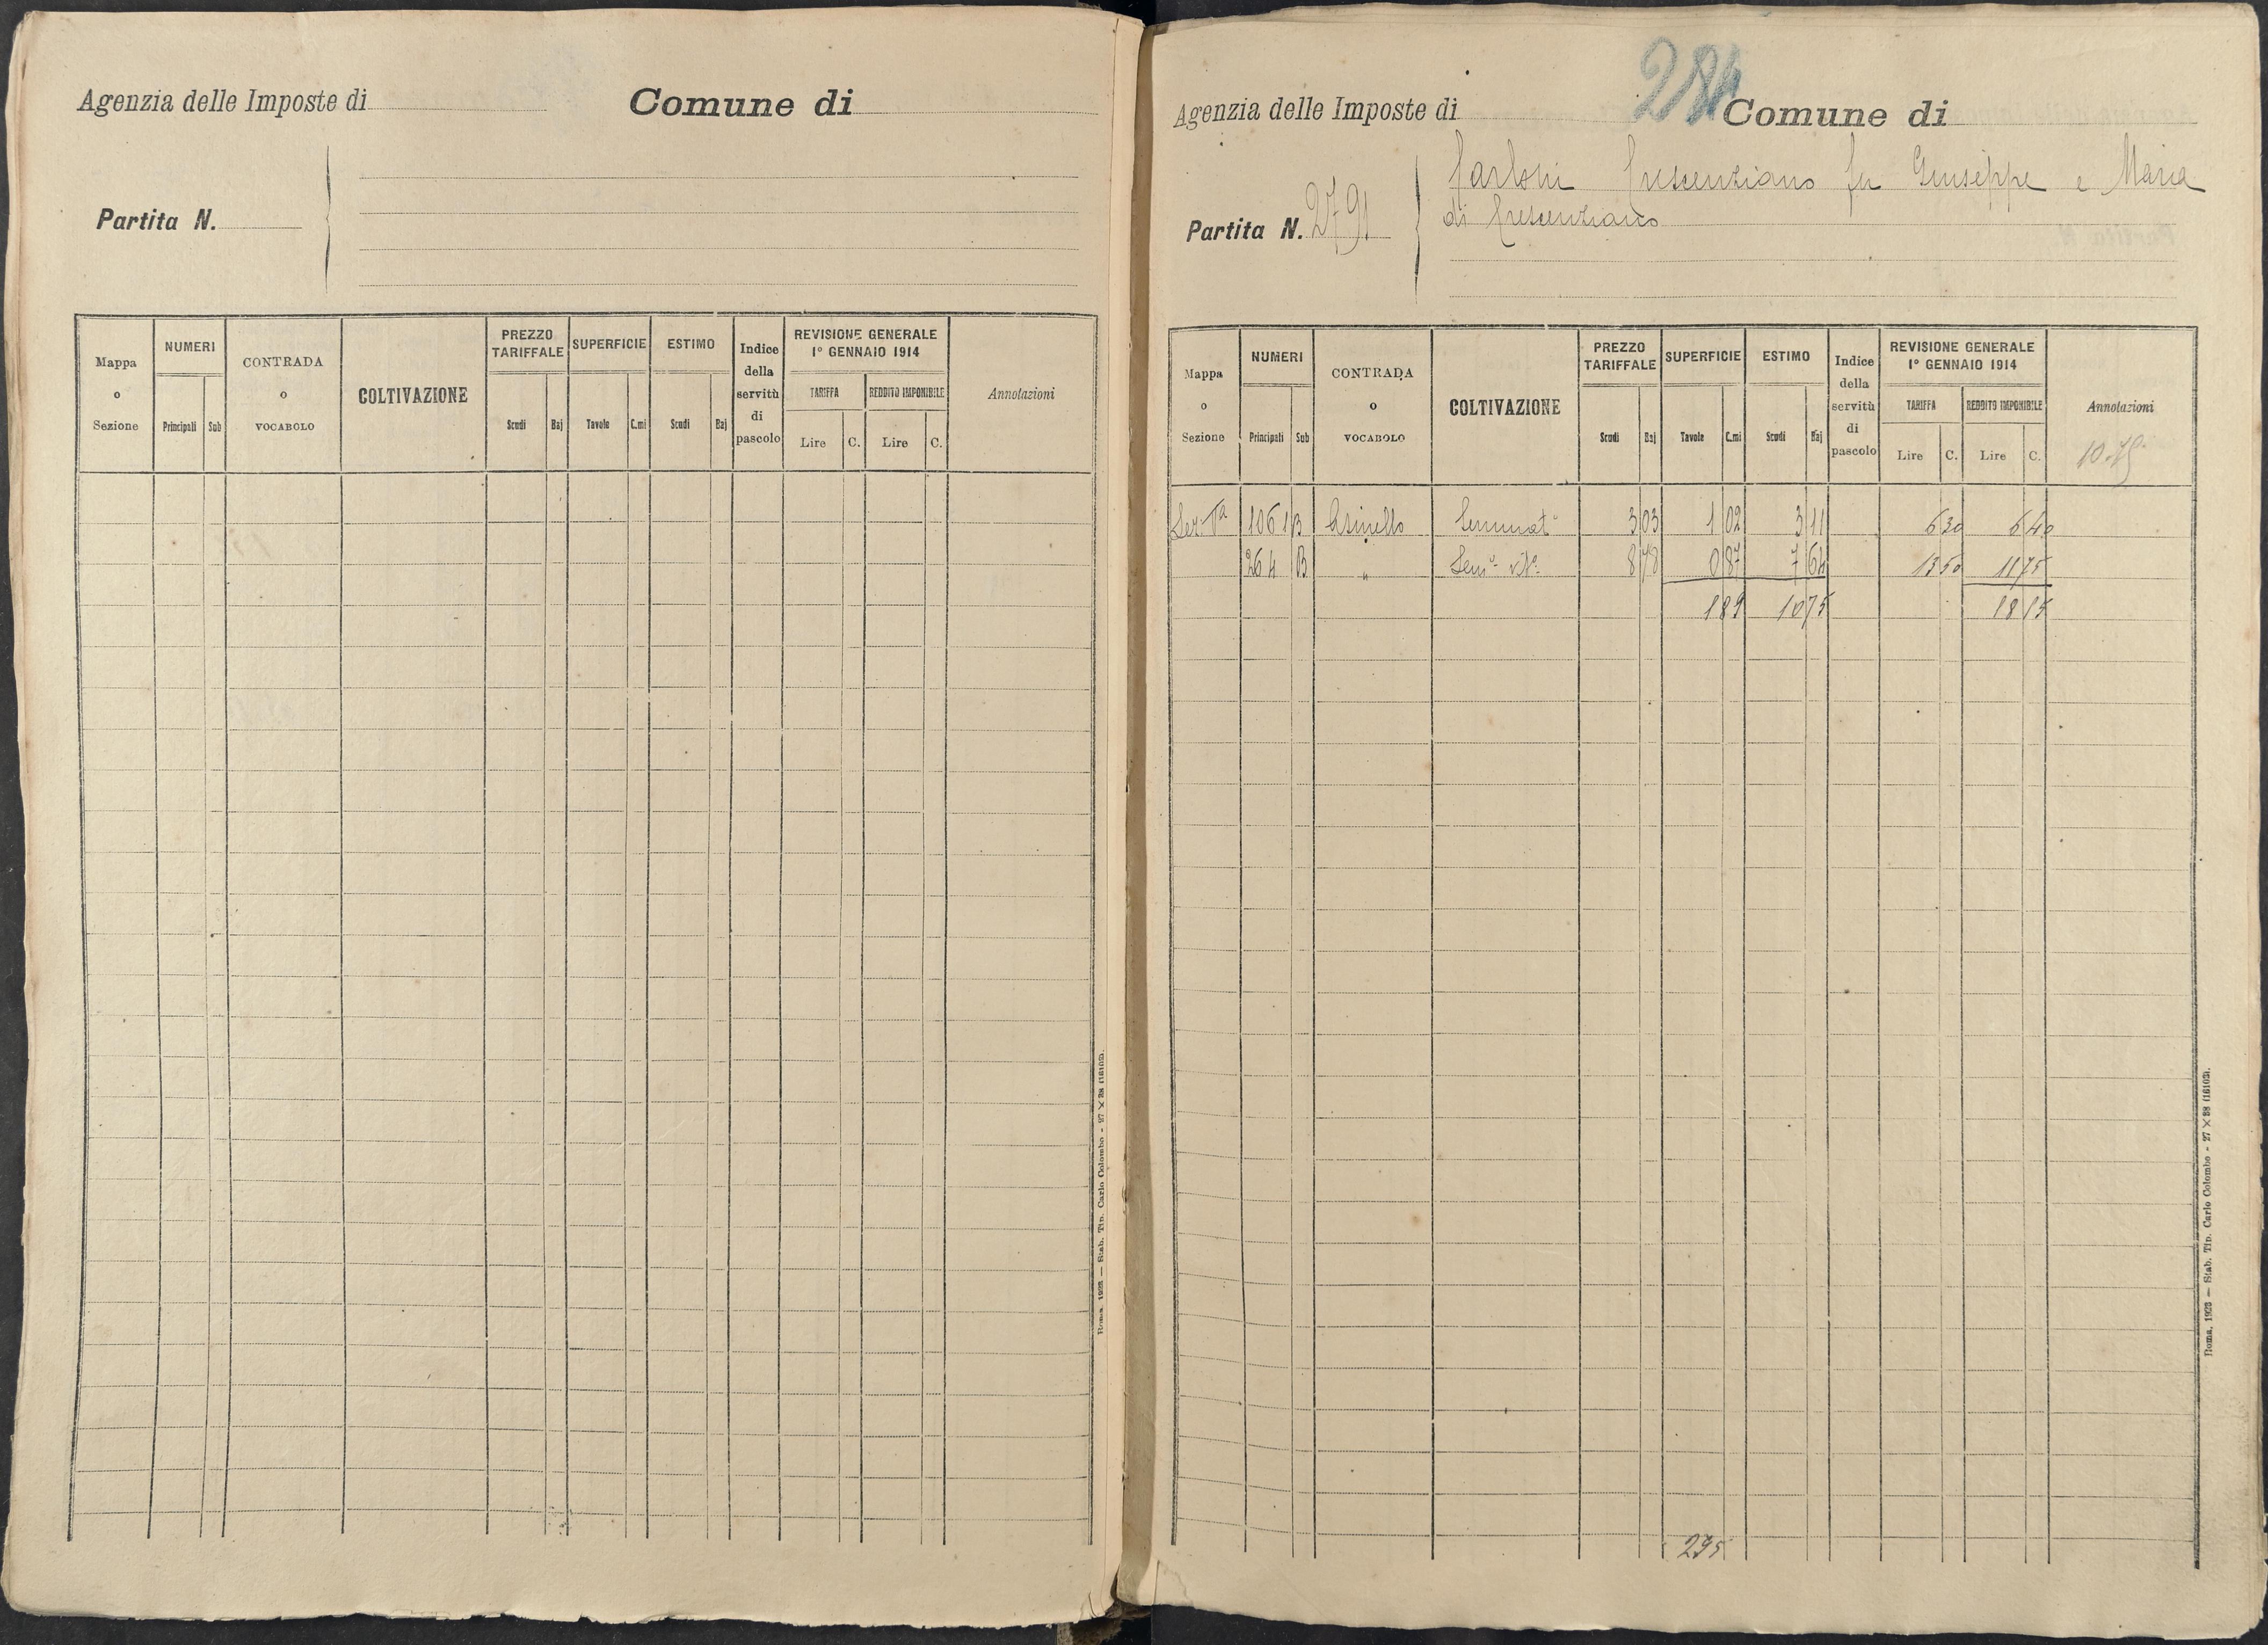 Agenzia delle Imposte di
Comune di
Partita N.
Mappa o Sezione
NUMERI
Principali
Sub
CONTRADA o VOCABOLO
COLTIVAZIONE
PREZZO TARIFFALE
Scudi
Baj
SUPERFICIE
Tavole
C.mi
ESTIMO
Scudi
Baj
Indice della servitù di pascolo
REVISIONE GENERALE
1° GENNAIO 1914
TARIFFA
REDDITO IMPONIBILE
Lire
C.
Lire
C.
Annotazioni
Roma, 1923 — Stab. Tip. Carlo Colombo - 27 × 38 (16102).
284
Agenzia delle Imposte di
Comune di
Carloni Crescenziano fu Giuseppe e Maria
di Crescenziano
Partita N. 2791
Mappa o Sezione
NUMERI
Principali
Sub
CONTRADA o VOCABOLO
COLTIVAZIONE
PREZZO TARIFFALE
Scudi
Baj
SUPERFICIE
Tavole
C.mi
ESTIMO
Scudi
Baj
Indice della servitù di pascolo
REVISIONE GENERALE
1° GENNAIO 1914
TARIFFA
REDDITO IMPONIBILE
Lire
C.
Lire
C.
Annotazioni
10.75
Sez. 1061 B Seminat° 3 03 1 02 3 11 6 30 6 40
264 B " Sem° vit° 8 78 0 87 7 64 13 50 11 75
1 89 10 75 18 15
295
Roma, 1923 — Stab. Tip. Carlo Colombo - 27 × 38 (16102).